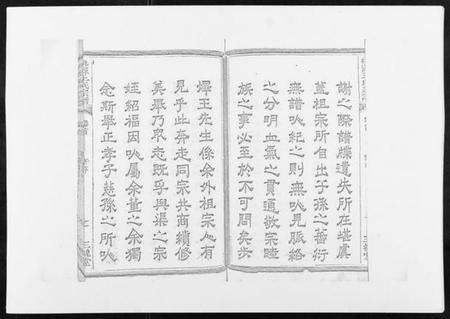 謝之際譜牒遺失所在堪虞
蓋祖宗所自出子孫之蕃衍
無譜以紀之則無以見脈絡
之分明血氣之貫通敬宗睦
族之事必至於不可問矣共
燡王先生係余外祖宗人有
見乎此奔走同宗共商續修
美舉乃衆志既孚與渠之宗
姪紹福因以屬余董之余獨
念斯舉正孝子慈孫之所以
三槐堂